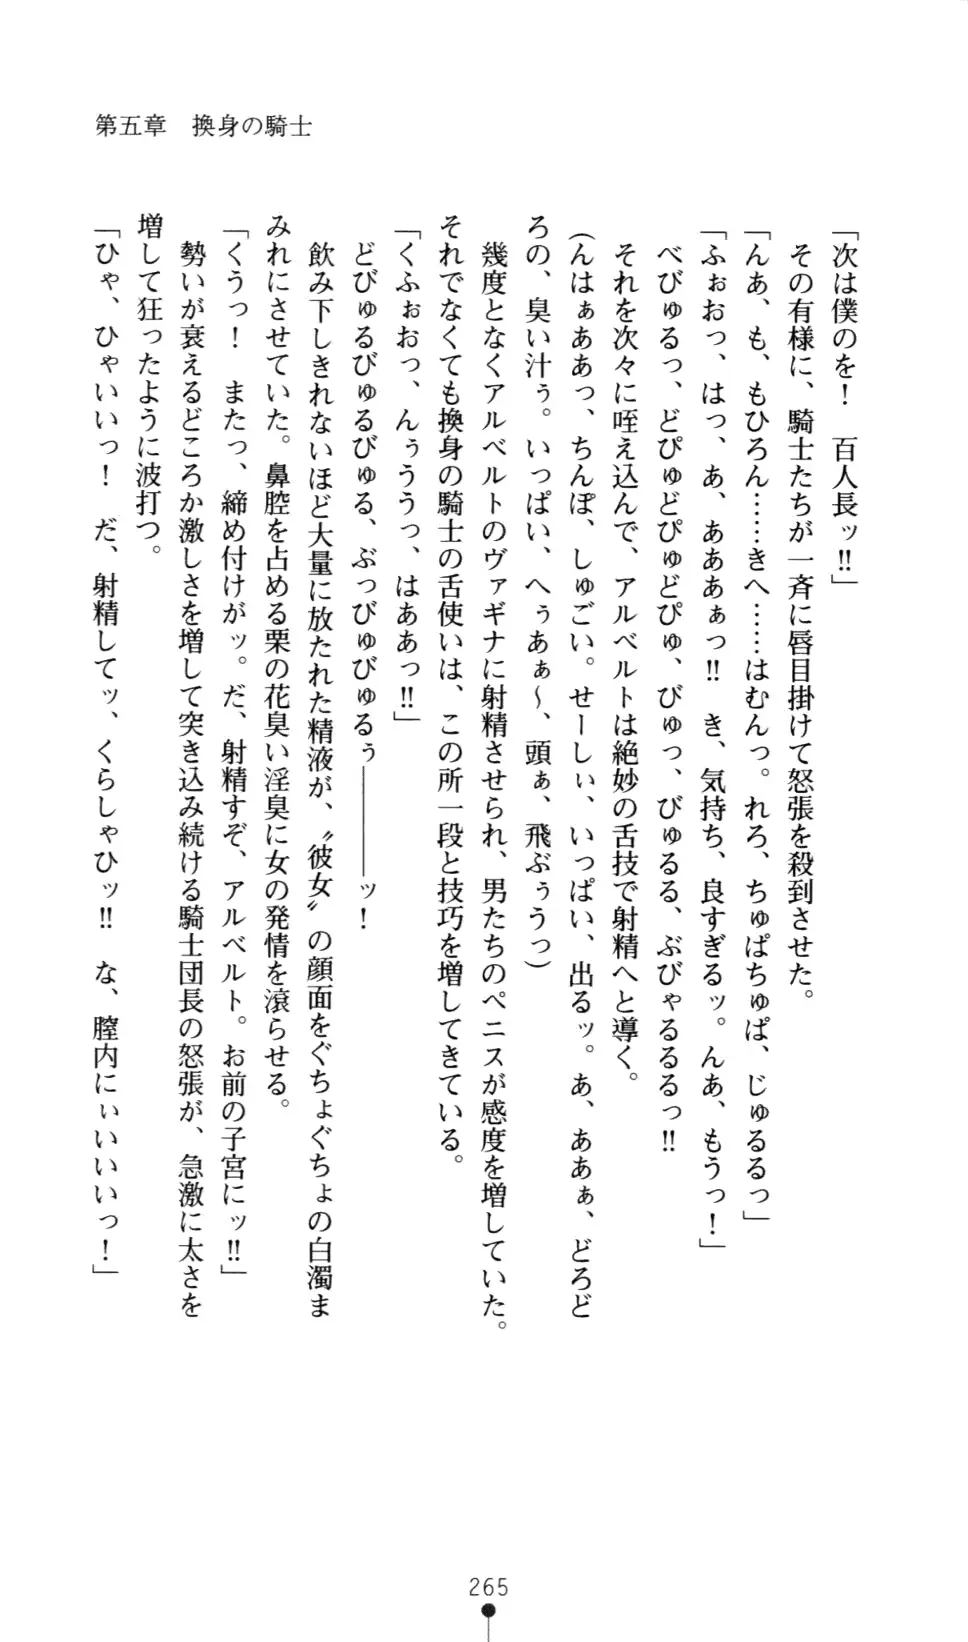 第五章　換身の騎士
「次は僕のを！　百人長ッ‼」
その有様に、騎士たちが一斉に唇目掛けて怒張を殺到させた。
「んあ、も、もひろん……きへ……はむんっ。れろ、ちゅぱちゅぱ、じゅるるっ」
「ふぉおっ、はっ、あ、あああぁっ‼　き、気持ち、良すぎるッ。んあ、もうっ！」
べびゅるっ、どぴゅどぴゅどぴゅ、びゅっ、びゅるる、ぶびゃるるるっ‼
それを次々に咥え込んで、アルベルトは絶妙の舌技で射精へと導く。
(んはぁああっ、ちんぽ、しゅごい。せーしぃ、いっぱい、出るッ。あ、ああぁ、どろど
ろの、臭い汁ぅ。いっぱい、へぅあぁ～、頭ぁ、飛ぶぅうっ)
幾度となくアルベルトのヴァギナに射精させられ、男たちのペニスが感度を増していた。
それでなくても換身の騎士の舌使いは、この所一段と技巧を増してきている。
「くふぉおっ、んぅううっ、はああっ‼」
どびゅるびゅるびゅる、ぶっびゅびゅるぅ――――ッ！
飲み下しきれないほど大量に放たれた精液が、〝彼女〟の顔面をぐちょぐちょの白濁ま
みれにさせていた。鼻腔を占める栗の花臭い淫臭に女の発情を滾らせる。
「くうっ！　またっ、締め付けがッ。だ、射精すぞ、アルベルト。お前の子宮にッ‼」
勢いが衰えるどころか激しさを増して突き込み続ける騎士団長の怒張が、急激に太さを
増して狂ったように波打つ。
「ひゃ、ひゃいいっ！　だ、射精してッ、くらしゃひッ‼　な、膣内にぃいいいっ！」
265